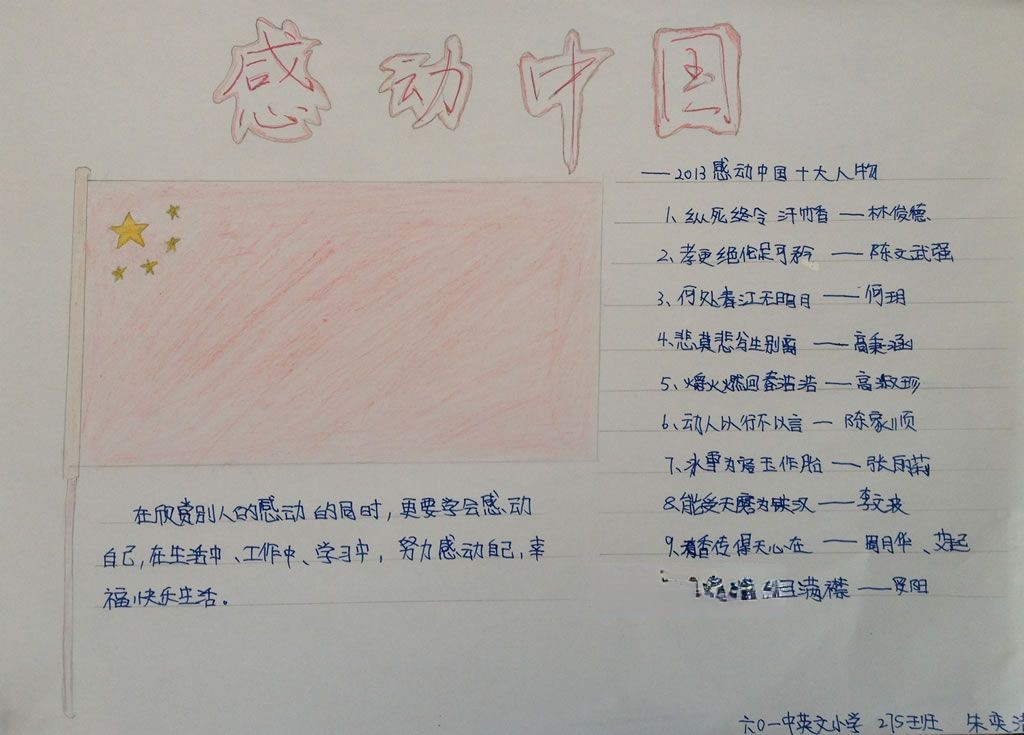 感动中国
——2013感动中国十大人物
1、纵死终令汗竹香——林俊德
2、孝更绝伦足可矜——陈文武强
3、何处春江无明月——何玥
4、悲莫悲兮生别离——高秉涵
5、爝火燃回春浩浩——高淑珍
6、动人以行不以言—陈家顺
7、冰雪为容玉作胎——张丽莉
8、能受天磨为铁汉——李文波
9、清香传得天心在——周月华、艾起
满襟——罗阳
在欣赏别人的感动的同时,更要学会感动
自己,在生活中、工作中、学习中,努力感动自己,幸
福快乐生活。
六〇一中英文小学 275班 朱奕